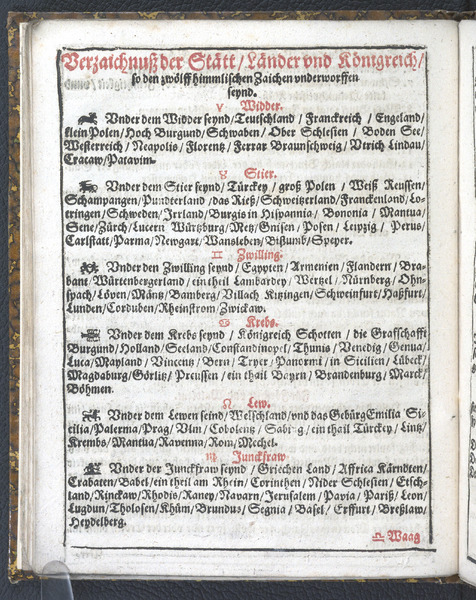 Verzaichnuß der Stätt / Länder vnd Königreich /
so den zwölff himmlischen Zaichen vnderworffen
seynd.
♈ Widder.
Vnder dem Widder seynd / Teutschland / Franckreich / Engeland /
klein Polen / Hoch Burgund / Schwaben / Ober Schlesien / Boden See /
Westerreich / Neapolis / Florentz / Ferrar Braunschweig / Vtrich Lindau /
Cracaw / Patavim.
♉ Stier.
Vnder dem Stier seynd / Türckey / groß Polen / Weiß Reussen /
Schampangen / Punderland / das Rieß / Schweitzerland / Franckenland / Lo-
tringen / Schweden / Irrland / Burgis in Hispannia / Bononia / Mantua /
Sene / Zürch / Lucern Würtzburg / Metz / Gnisen / Posen / Leipzig / Perus /
Carlstatt / Parma / Newgart / Wansleben / Bistumb / Speyer.
♊ Zwilling.
Vnder den Zwilling seynd / Egypten / Armenien / Flandern / Bra-
bant / Würtenbergerland / ein theil Lambardey / Wertzel / Nürnberg / Ohn-
spach / Löven / Mäntz / Bamberg / Villach Kitzingen / Schweinfurt / Haßfurt /
Lunden / Corduben / Rheinstrom / Zwickaw.
♋ Krebs.
Vnder dem Krebs seynd / Königreich Schotten / die Graffschafft
Burgund / Holland / Seeland / Constandinopel / Thunis / Venedig / Genua /
Luca / Mayland / Vincentz / Bern / Tryer / Panormi / in Sicilien / Lübeck /
Magdaburg / Görlitz / Preussen / ein thail Bayrn / Brandenburg / Marck /
Böhmen.
♌ Lew.
Vnder dem Lewen seind / Welschland / vnd das Gebürg Emilia Si-
cilia / Palerma / Prag / Vlm / Cobolentz / ein thail Türckey / Lintz /
Krembs / Mantua / Ravenna / Rom / Mechel.
♍ Junckfraw
Vnder der Junckfraw seynd / Griechen Land / Affrica Kärndten /
Crabaten / Babel / ein theil am Rhein / Corinthen / Nider Schlesien / Etsch-
land / Rinckaw / Rhodis / Raney / Navarn / Jerusalem / Pavia / Pariß / Leon /
Lugdun / Tholosen / Khüm / Brundus / Segnia / Basel / Erffurt / Breßlaw /
Heydelberg.
♎ Waag